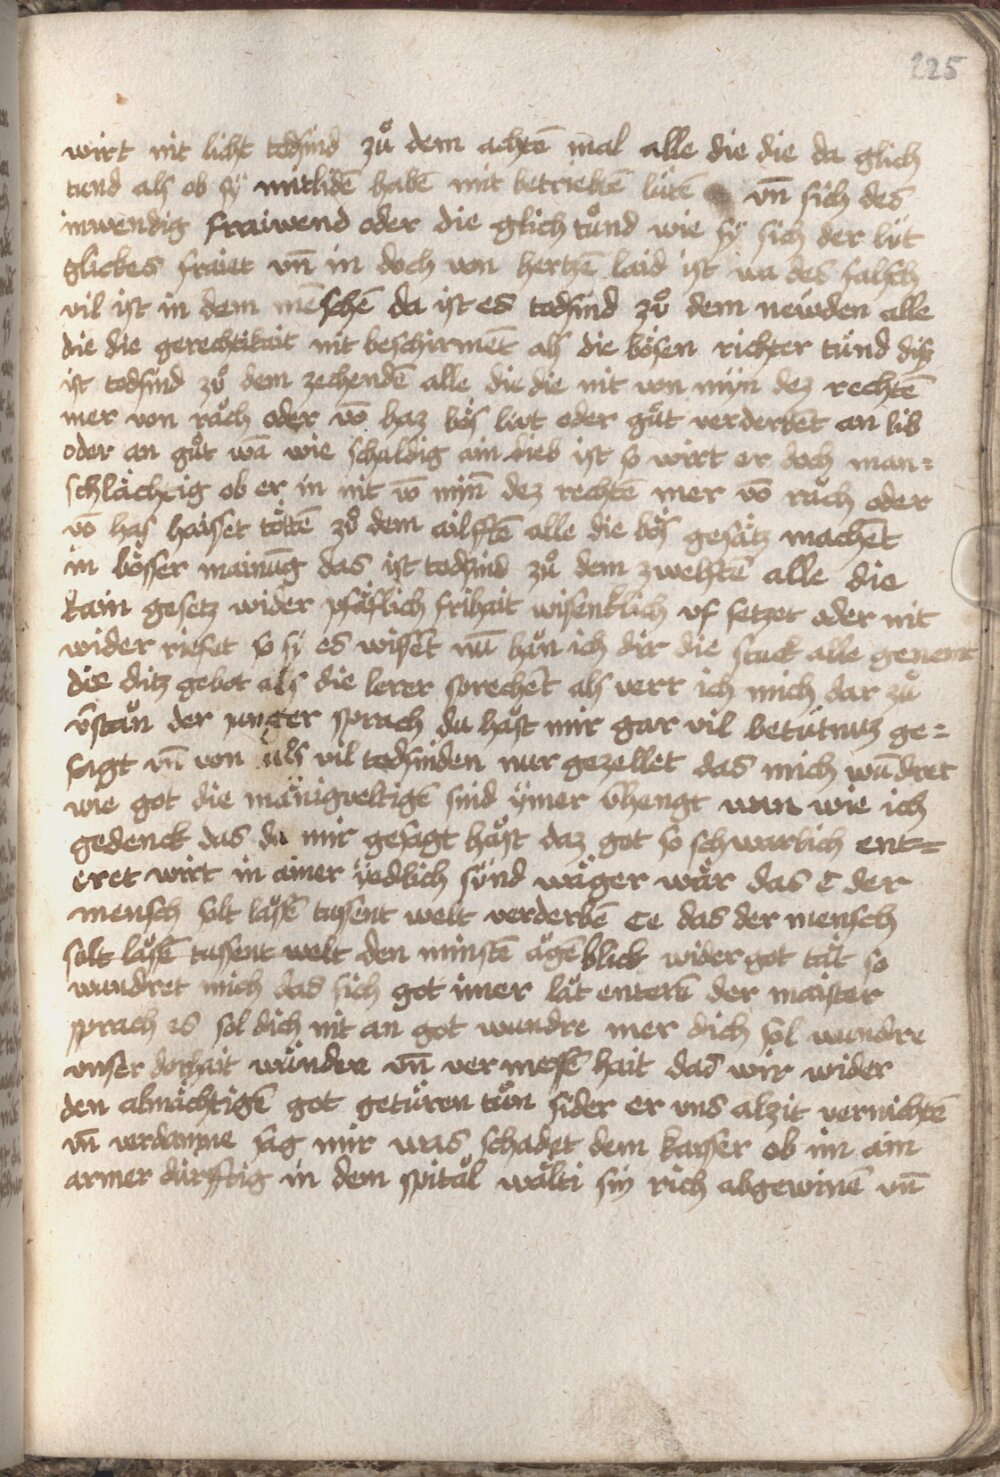 225
wirt nit licht todsind zuͦ dem achtē mal alle die die da glich
tund als ob sÿ mitlidē habē mit betriebtē lütē vn̄ sich des
inwendig fraiwend oder die glich tuͦnd wie sÿ sich der lüt
glickes fraiet vn̄ in doch von hertzē laid ist wa des falsch
vil ist in dem mēschē da ist es todsind zuͦ dem newden alle
die die gerechtikait nit beschirmēt als die bösen richter tuͦnd disz
ist todsind zuͦ dem zechendē alle die die nit von minn dez rechtē
mer von rauch oder vō haz bös lüt oder guͦt verderbēt an lib
oder an guͦt wā wie schuldig ain dieb ist so wirt er doch man=
schlächtig ob er in nit vō min̄ dez rechtē mer vō rauch oder
vō has haisset töttē zuͦ dem ailfftē alle die bös gesätz machēt
in bösser mainūg das ist todsind zuͦ dem zwelftē alle die
kain gesetz wider pfäflich frihait wisenklich vf setzet oder nit
wider riefet so sÿ es wissēt nū haun ich dir die stuck alle genent
die ditz gebot als die lerer sprechēt als verr ich mich dar zuͦ
v̄staun der junger sprach du hast mir gar vil betütnuz ge=
sagt vn̄ von als vil todsinden nur gezellet das mich wūdret
wie got die manigveltigē sind ÿmer v̄hengt wan wie ich
gedenck das du mir gesagt hast daz got so schwarlich ent=
eret wirt in ainer ÿedlich sünd wäger wär das e der
mensch solt lassē tussent welt verderbē Ee das der mensch
solt lassē tussent welt den minstē agēblick wider got tät so
wundret mich das sich got imer lat enterē der maister
sprach es sol dich nit an got wundre mer dich sol wundre
vnser dorhait wundre vn̄ vermessē hait das wir wider
den almächtigē got getüren tuͦn sider er vns alzit vernichtē
vn̄ verdampne sag mir was schadet dem kaisser ob im ain
armer dürfftig in dem spital wölti sin rich abgewinē vn̄